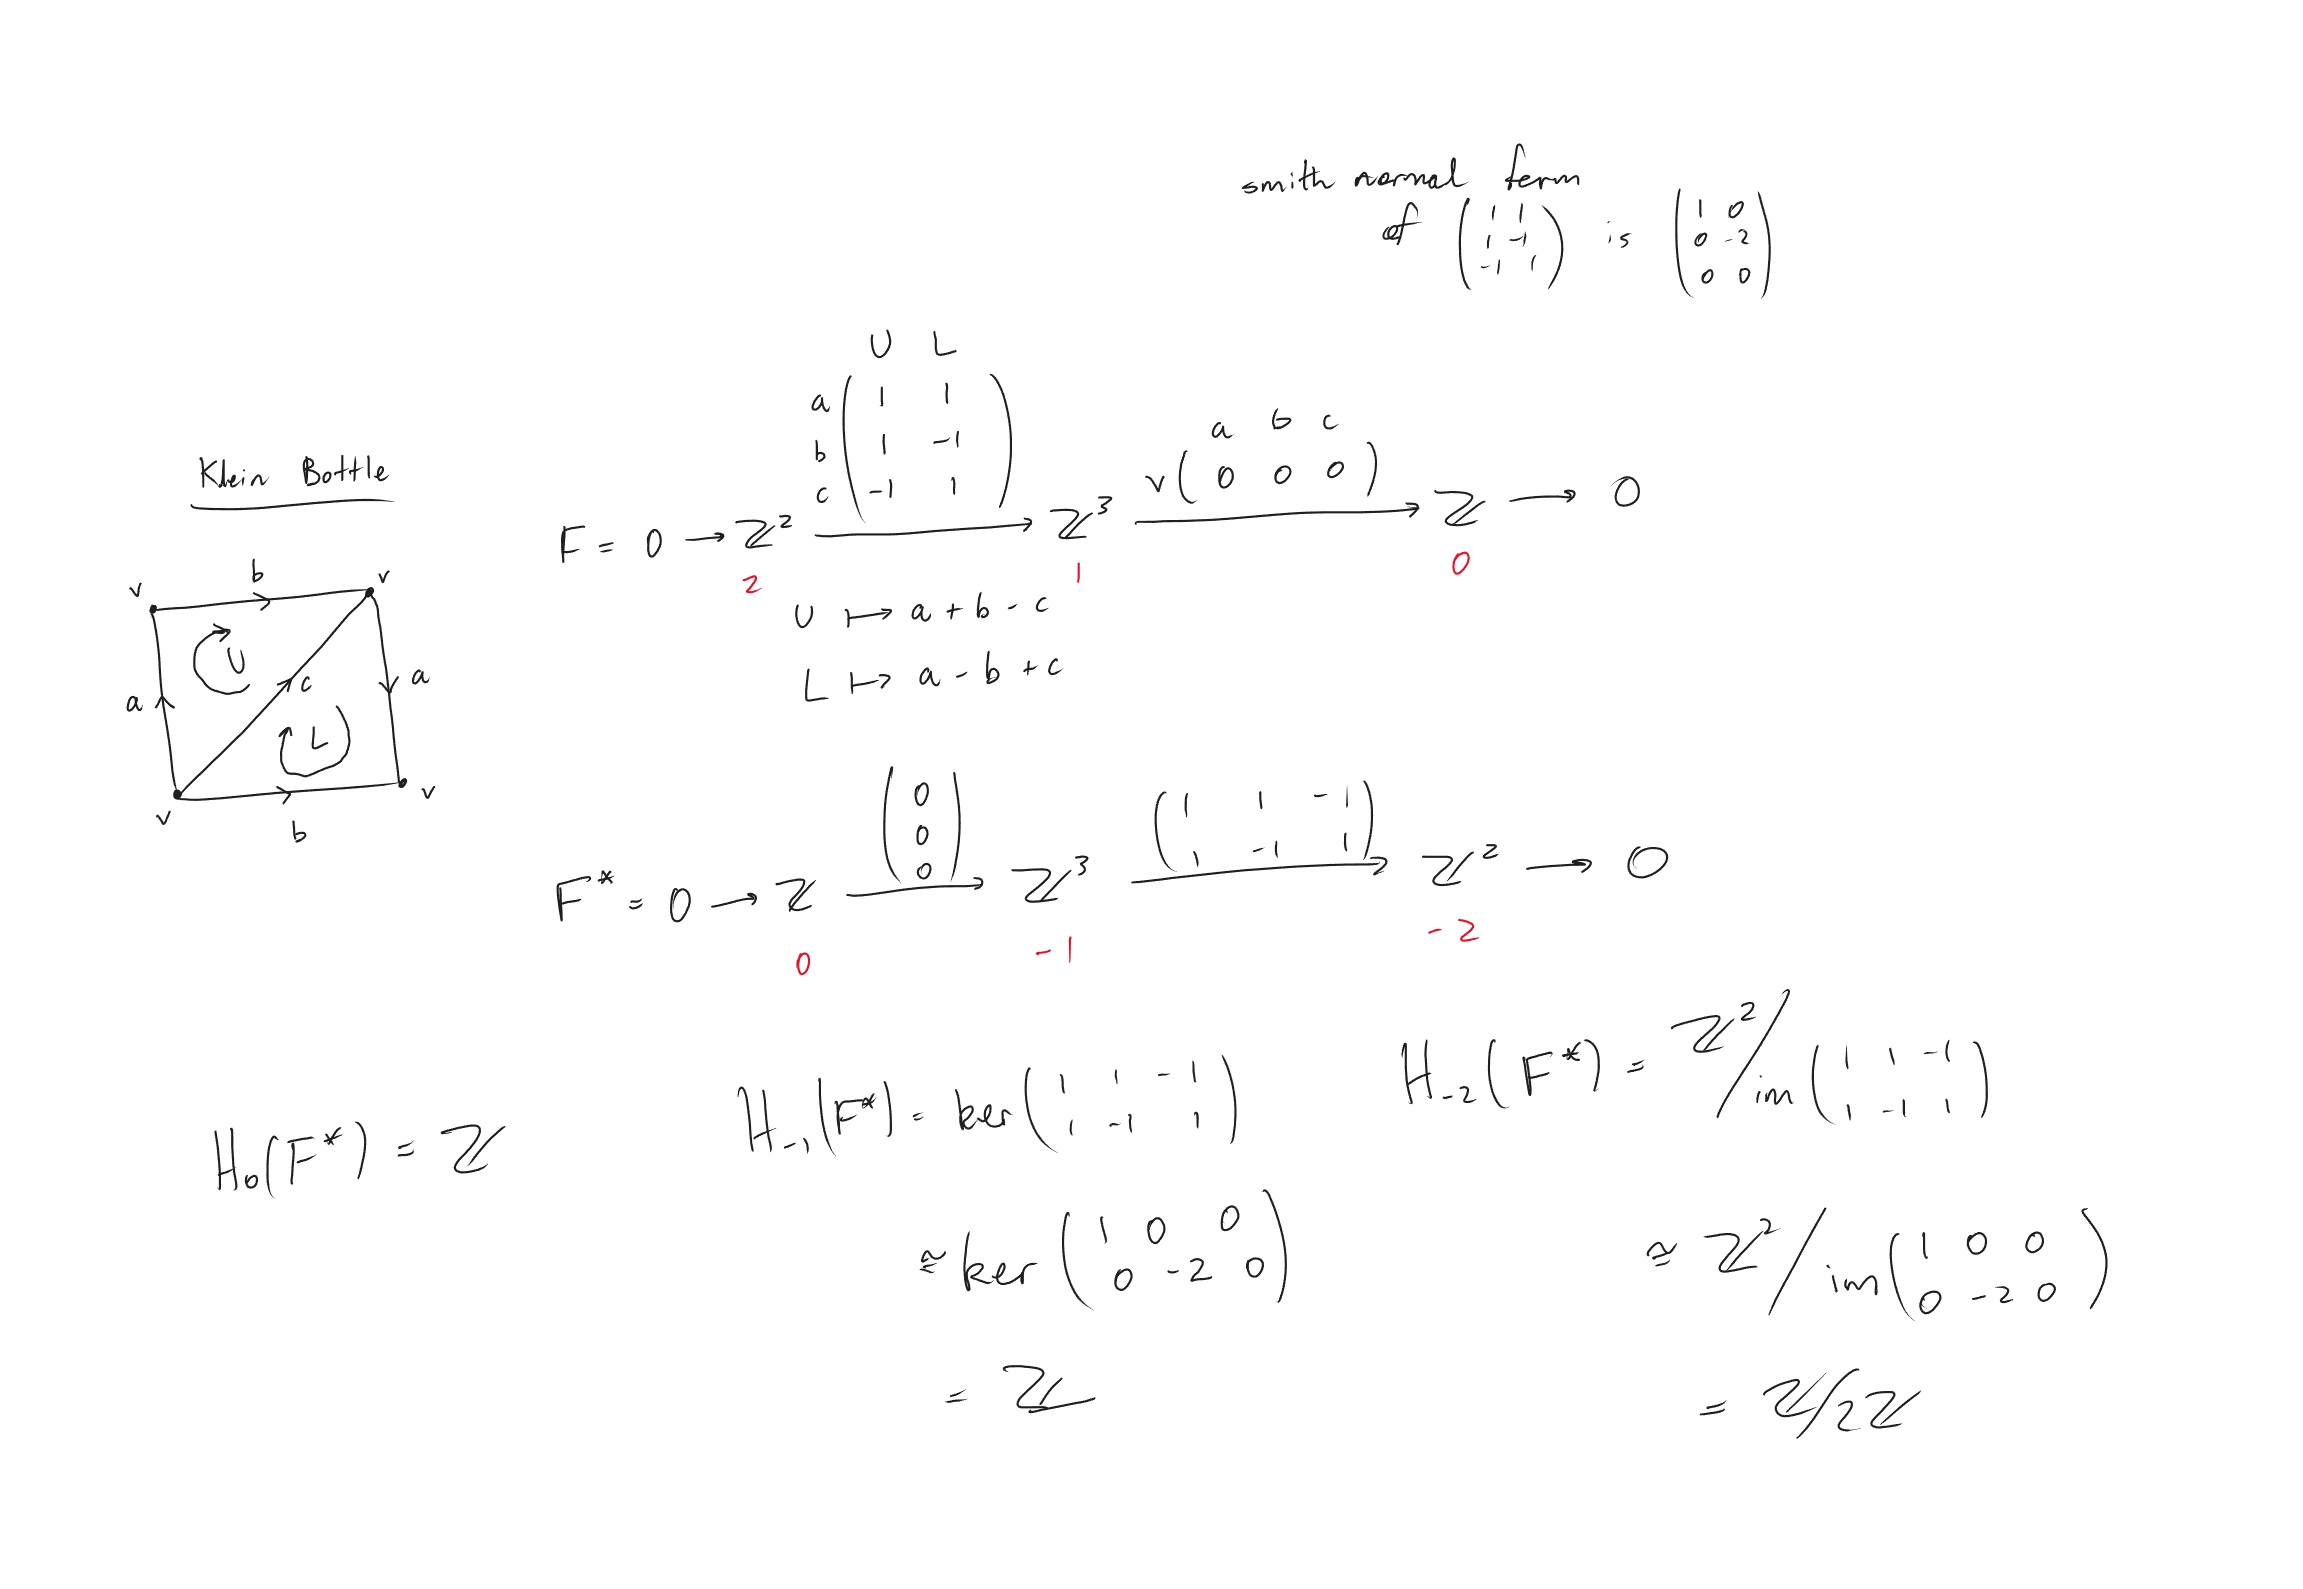 smith normal form
of ( 1 1 ; 1 -1 ; -1 1 ) is ( 1 0 ; 0 -2 ; 0 0 )
Klein Bottle
v b v
a U c a
L
v b v
U L
a ( 1 1
b 1 -1
c -1 1 )
a b c
v ( 0 0 0 )
F = 0 → ℤ² → ℤ³ → ℤ → 0
2 1 0
U ↦ a + b - c
L ↦ a - b + c
( 0 ; 0 ; 0 ) ( 1 1 -1 ; 1 -1 1 )
F* = 0 → ℤ → ℤ³ → ℤ² → 0
0 -1 -2
H₀(F*) = ℤ
H₋₁(F*) = ker ( 1 1 -1 ; 1 -1 1 )
≅ ker ( 1 0 0 ; 0 -2 0 )
= ℤ
H₋₂(F*) = ℤ² / im ( 1 1 -1 ; 1 -1 1 )
≅ ℤ² / im ( 1 0 0 ; 0 -2 0 )
= ℤ/2ℤ